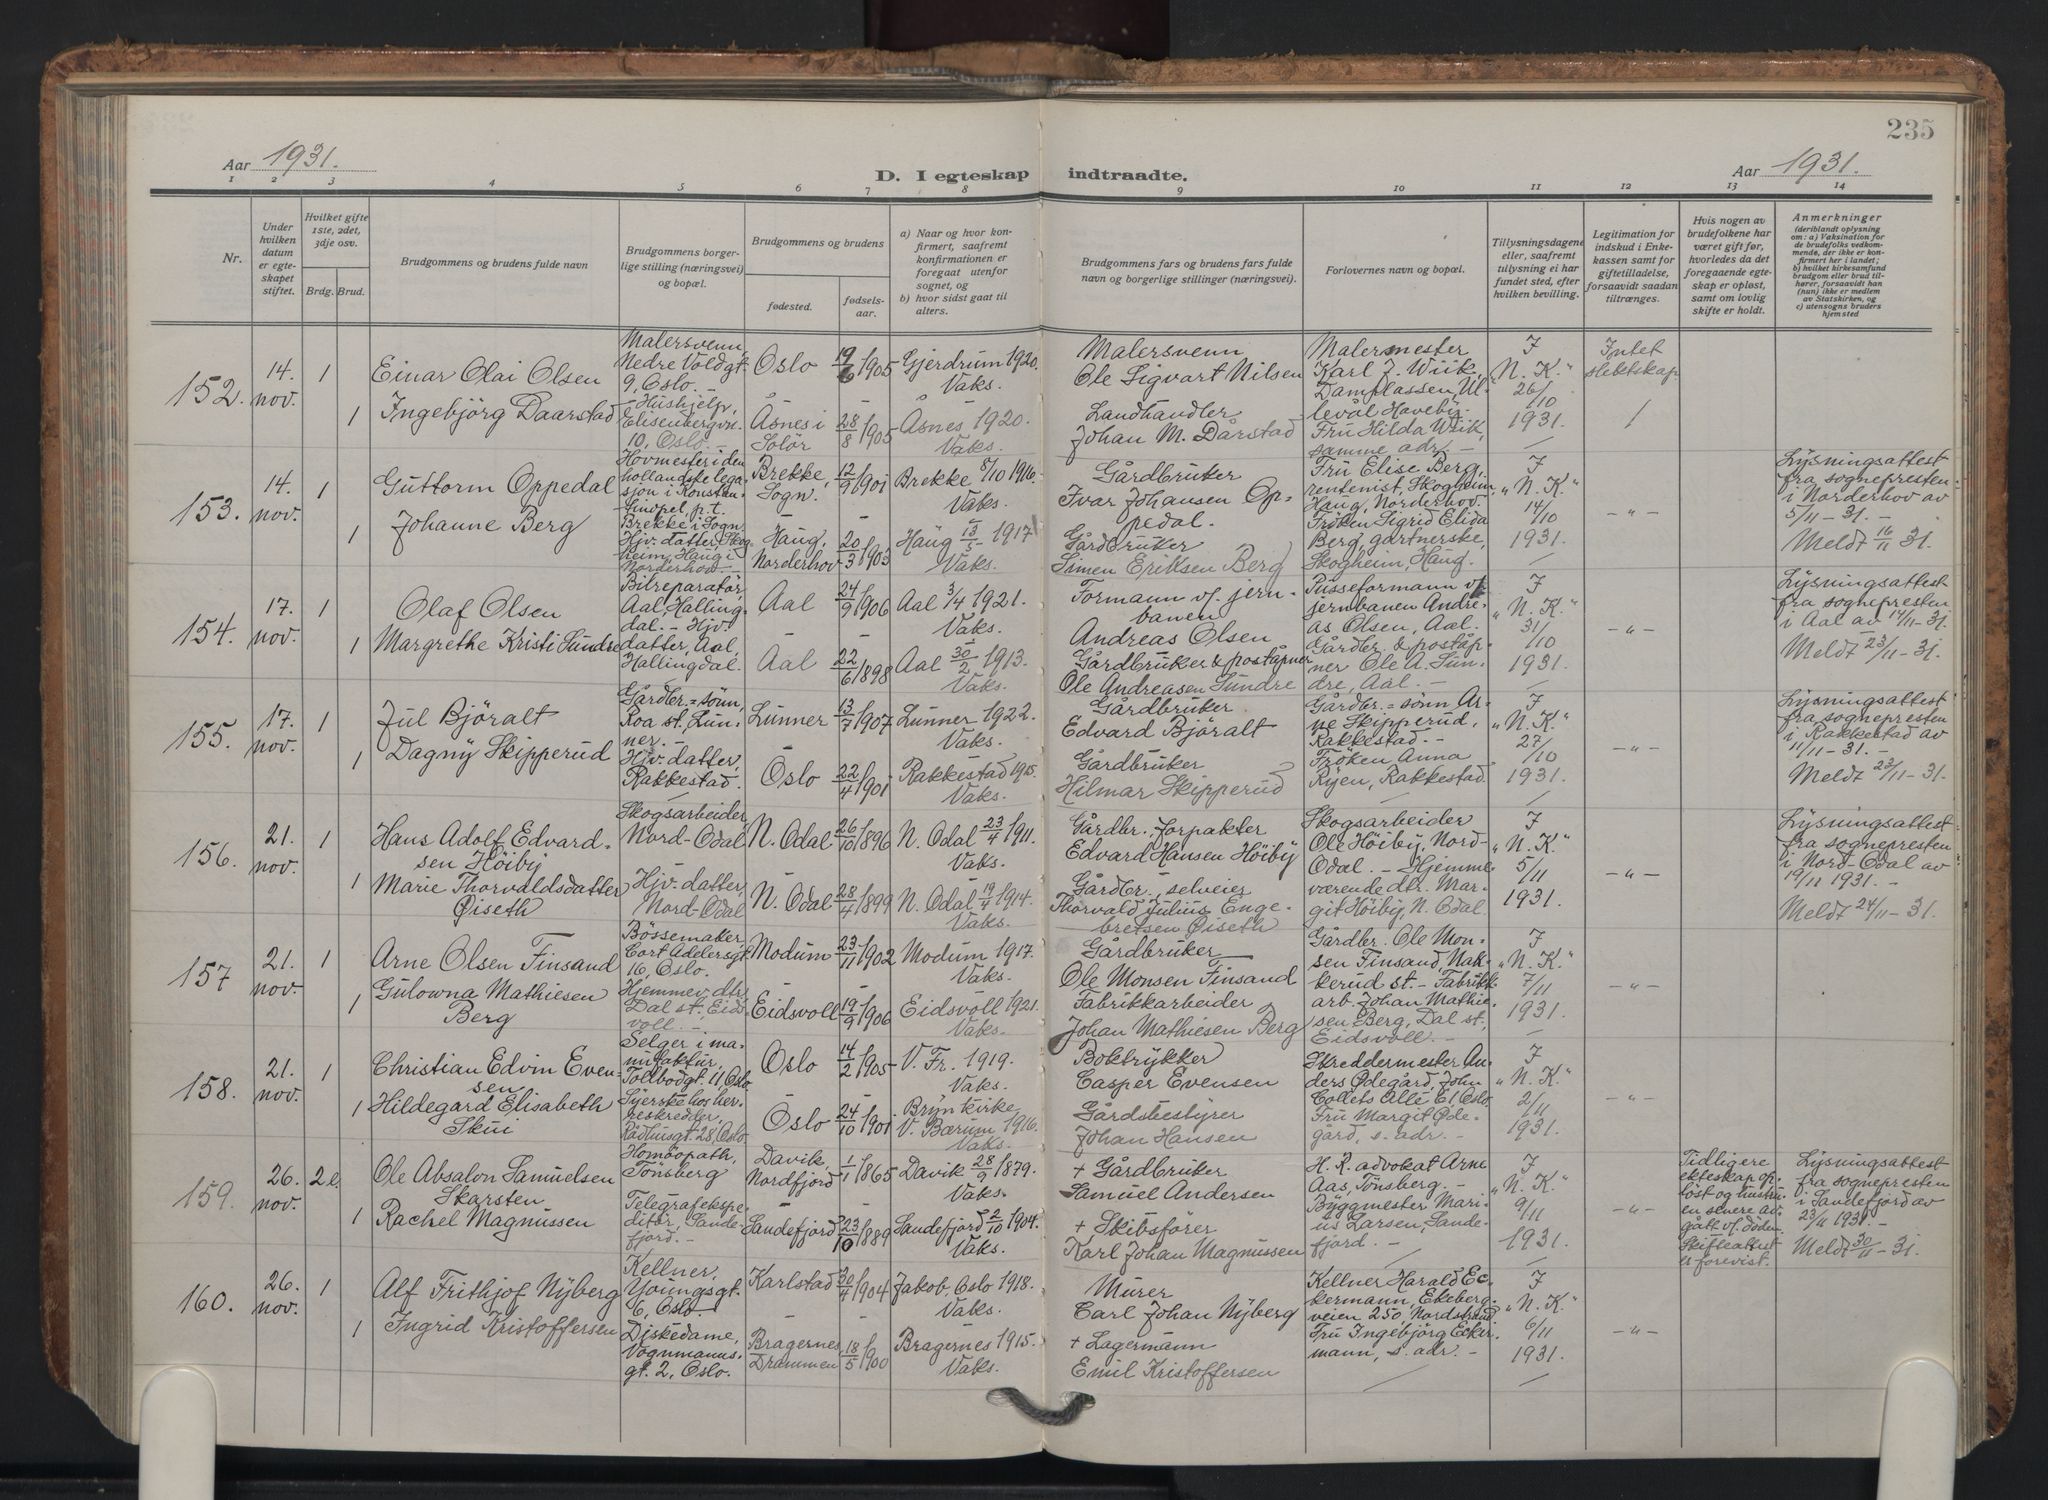 235
Aar 1931.
D. I egteskap indtraadte.
Aar 1931.
1 2 3 4 5 6 7 8 9 10 11 12 13 14
Nr.
Under hvilken datum er egteskapet stiftet.
Hvilket gifte 1ste, 2det, 3dje osv.
Brdg. Brud.
Brudgommens og brudens fulde navn
Brudgommens borgerlige stilling (næringsvei) og bopæl.
Brudgommens og brudens
fødested.
fødselsaar.
a) Naar og hvor konfirmert, saafremt konfirmationen er foregaat utenfor sognet, og
b) hvor sidst gaat til alters.
Brudgommens fars og brudens fars fulde navn og borgerlige stillinger (næringsvei).
Forlovernes navn og bopæl.
Tillysningsdagene eller, saafremt tillysning ei har fundet sted, efter hvilken bevilling.
Legitimation for indskud i Enkekassen samt for giftetilladelse, forsaavidt saadan tiltrænges.
Hvis nogen av brudefolkene har været gift før, hvorledes da det foregaaende egteskap er opløst, samt om lovlig skifte er holdt.
Anmerkninger
(deriblandt oplysning om: a) Vaksination for de brudefolks vedkommende, der ikke er konfirmert her i landet; b) hvilket kirkesamfund brudgom eller brud tilhører, forsaavidt han (hun) ikke er medlem av Statskirken, og c) utensogns bruders hjemsted
152. 14. nov. 1
Einar Olai Olsen
Malersvenn, Nedre Voldgt. 9, Oslo. –
Oslo 19/6 1905
Gjerdrum 1920. Vaks.
Malersvenn
Ole Sigvart Nilsen
Malermester Karl J. Wiik, Damplassen, Ullevål Haveby.
I "N. K." 26/10 1931.
Intet slektskap
1 Ingebjörg Daarstad
Hushjelp, Elisenbergvn. 10, Oslo. –
Åsnes i Solör 28/8 1905
Åsnes 1920. Vaks.
Landhandler
Johan M. Dårstad
Fru Hilda Wiik, samme adr. –
153. 14. nov. 1
Guttorm Oppedal
Hovmester i den hollandske legasjon i Konstantinopel, p.t. Brekke i Sogn.
Brekke, Sogn. 12/9 1901
Brekke 8/10 1916. Vaks.
Gårdbruker
Ivar Johansen Oppedal.
Fru Elise Berg, rentenist, Skogheim, Haug, Norderhov.
I "N. K." 14/10 1931.
– " –
Lysningsattest fra sognepresten i Norderhov av 5/11 – 31. –
Meldt 16/11 31.
1 Johanne Berg
Hjv. datter, Skogheim, Haug i Norderhov. –
Haug, Norderhov 20/3 1903
Haug 13/5 1917. Vaks.
Gårdbruker
Simen Eriksen Berg
Fröken Sigrid Elida Berg, gartnerske, Skogheim, Haug.
154. 17. nov. 1
Olaf Olsen
Bilreparatör, Aal, Hallingdal. –
Aal 24/9 1906
Aal 3/4 1921. Vaks.
Formann v/ jernbanen
Andreas Olsen
Pusseformann v/ jernbanen Andreas Olsen, Aal.
I "N. K." 31/10 1931.
– " –
Lysningsattest fra sognepresten i Aal av 14/11 – 31.
Meldt 23/11 – 31.
1 Margrethe Kristi Sundre
Hjv. datter, Aal, Hallingdal.
Aal 22/6 1898
Aal 30/2 1913. Vaks.
Gårdbruker & poståpner
Ole Andreasen Sundre
Gårdbr. & poståpner Ole A. Sundre, Aal. –
155. 17. nov. 1
Jul Björalt
Gårdbr. = sönn, Roa st. Lunner.
Lunner 13/7 1907
Lunner 1922. Vaks.
Gårdbruker
Edvard Björalt
Gårdbr. = sönn Arne Skipperud, Rakkestad. –
I "N. K." 27/10 1931.
– " –
Lysningsattest fra sognepresten i Rakkestad av 11/11 – 31. –
Meldt 23/11 – 31.
1 Dagny Skipperud
Hjv. datter, Rakkestad.
Oslo 22/4 1901
Rakkestad 1915. Vaks.
Gårdbruker
Hilmar Skipperud
Fröken Anna Ryen, Rakkestad.
156. 21. nov. 1
Hans Adolf Edvardsen Höiby
Skogsarbeider, Nord-Odal
N. Odal 26/10 1896
N. Odal 23/4 1911. Vaks.
Gårdbr., forpakter
Edvard Hansen Höiby
Skogsarbeider Ole Höiby, Nord-Odal. –
I "N. K." 5/11 1931.
– " –
Lysningsattest fra sognepresten i Nord-Odal av 19/11 1931. –
Meldt 24/11 – 31.
1 Marie Thorvaldsdatter Øiseth
Hjv. datter, Nord-Odal
N. Odal 28/4 1899
N. Odal 19/4 1914. Vaks.
Gårdbr., selveier
Thorvald Julius Engebretsen Øiseth
Hjemmeværende dtr. Margit Höiby, N. Odal.
157 21. nov. 1
Arne Olsen Finsand
Bössemaker, Cort Adelersgt. 16, Oslo.
Modum 23/11 1902
Modum 1917. Vaks.
Gårdbruker
Ole Monsen Finsand
Gårdbr. Ole Monsen Finsand, Nakkerud st. –
I "N. K." 7/11 1931.
– " –
1 Gulowna Mathiesen Berg
Hjemmev. dtr. Dal st., Eidsvoll. –
Eidsvoll 19/9 1906
Eidsvoll 1921. Vaks.
Fabrikkarbeider
Johan Mathiesen Berg
Fabrikkarb. Johan Mathiesen Berg, Dal st., Eidsvoll. –
158. 21. nov. 1
Christian Edvin Evensen
Selger i manufaktur, Tollbodgt. 11, Oslo
Oslo 14/2 1905
V. Fr. 1919. Vaks.
Boktrykker
Casper Evensen
Skreddermester Anders Ødegård, John Collets Allé E1 Oslo.
I "N. K." 2/11 1931.
– " –
1 Hildegard Elisabeth Skui
Syerske hos herreskredder, Rådhusgt. 28, Oslo.
Oslo 24/10 1901
Bryn kirke, V. Bærum 1916. Vaks.
Gårdsbestyrer
Johan Hansen
Fru Margit Ødegård, s. adr. –
159. 26. nov. 2.
Ole Absalon Samuelsen Skarsten
Homöopath, Tönsberg
Davik, Nordfjord 1/1 1865
Davik 28/9 1879. Vaks.
+ Gårdbruker
Samuel Andersen
H. R. advokat Arne Aas, Tönsberg. –
I "N. K." 9/11 1931.
– " –
Tidligere ekteskap oplöst og hustruen senere avgått v/ döden Skifteattest er forevist.
Lysningsattest fra sognepresten i Sandefjord av 23/11 1931. –
Meldt 30/11 – 31.
1 Rachel Magnussen
Telegrafekspeditör, Sandefjord. –
Sandefjord 23/10 1889
Sandefjord 2/10 1904. Vaks.
+ Skibsförer
Karl Johan Magnussen
Byggmester Marius Larsen, Sandefjord. –
160. 26. nov. 1
Alf Frithjof Nyberg
Kellner, Youngsgt. 6, Oslo
Karlstad 30/4 1904
Jakob, Oslo 1918. Vaks.
Murer
Carl Johan Nyberg
Kellner Harald Eckermann, Ekebergveien 250, Nordstrand
I "N. K." 6/11 1931.
– " –
1 Ingrid Kristoffersen
Diskedame, Vognmannsgt. 2, Oslo.
Bragernes, Drammen 18/5 1900
Bragernes 1915. Vaks.
+ Lagermann
Emil Kristoffersen
Fru Ingebjörg Eckermann, s. adr. –